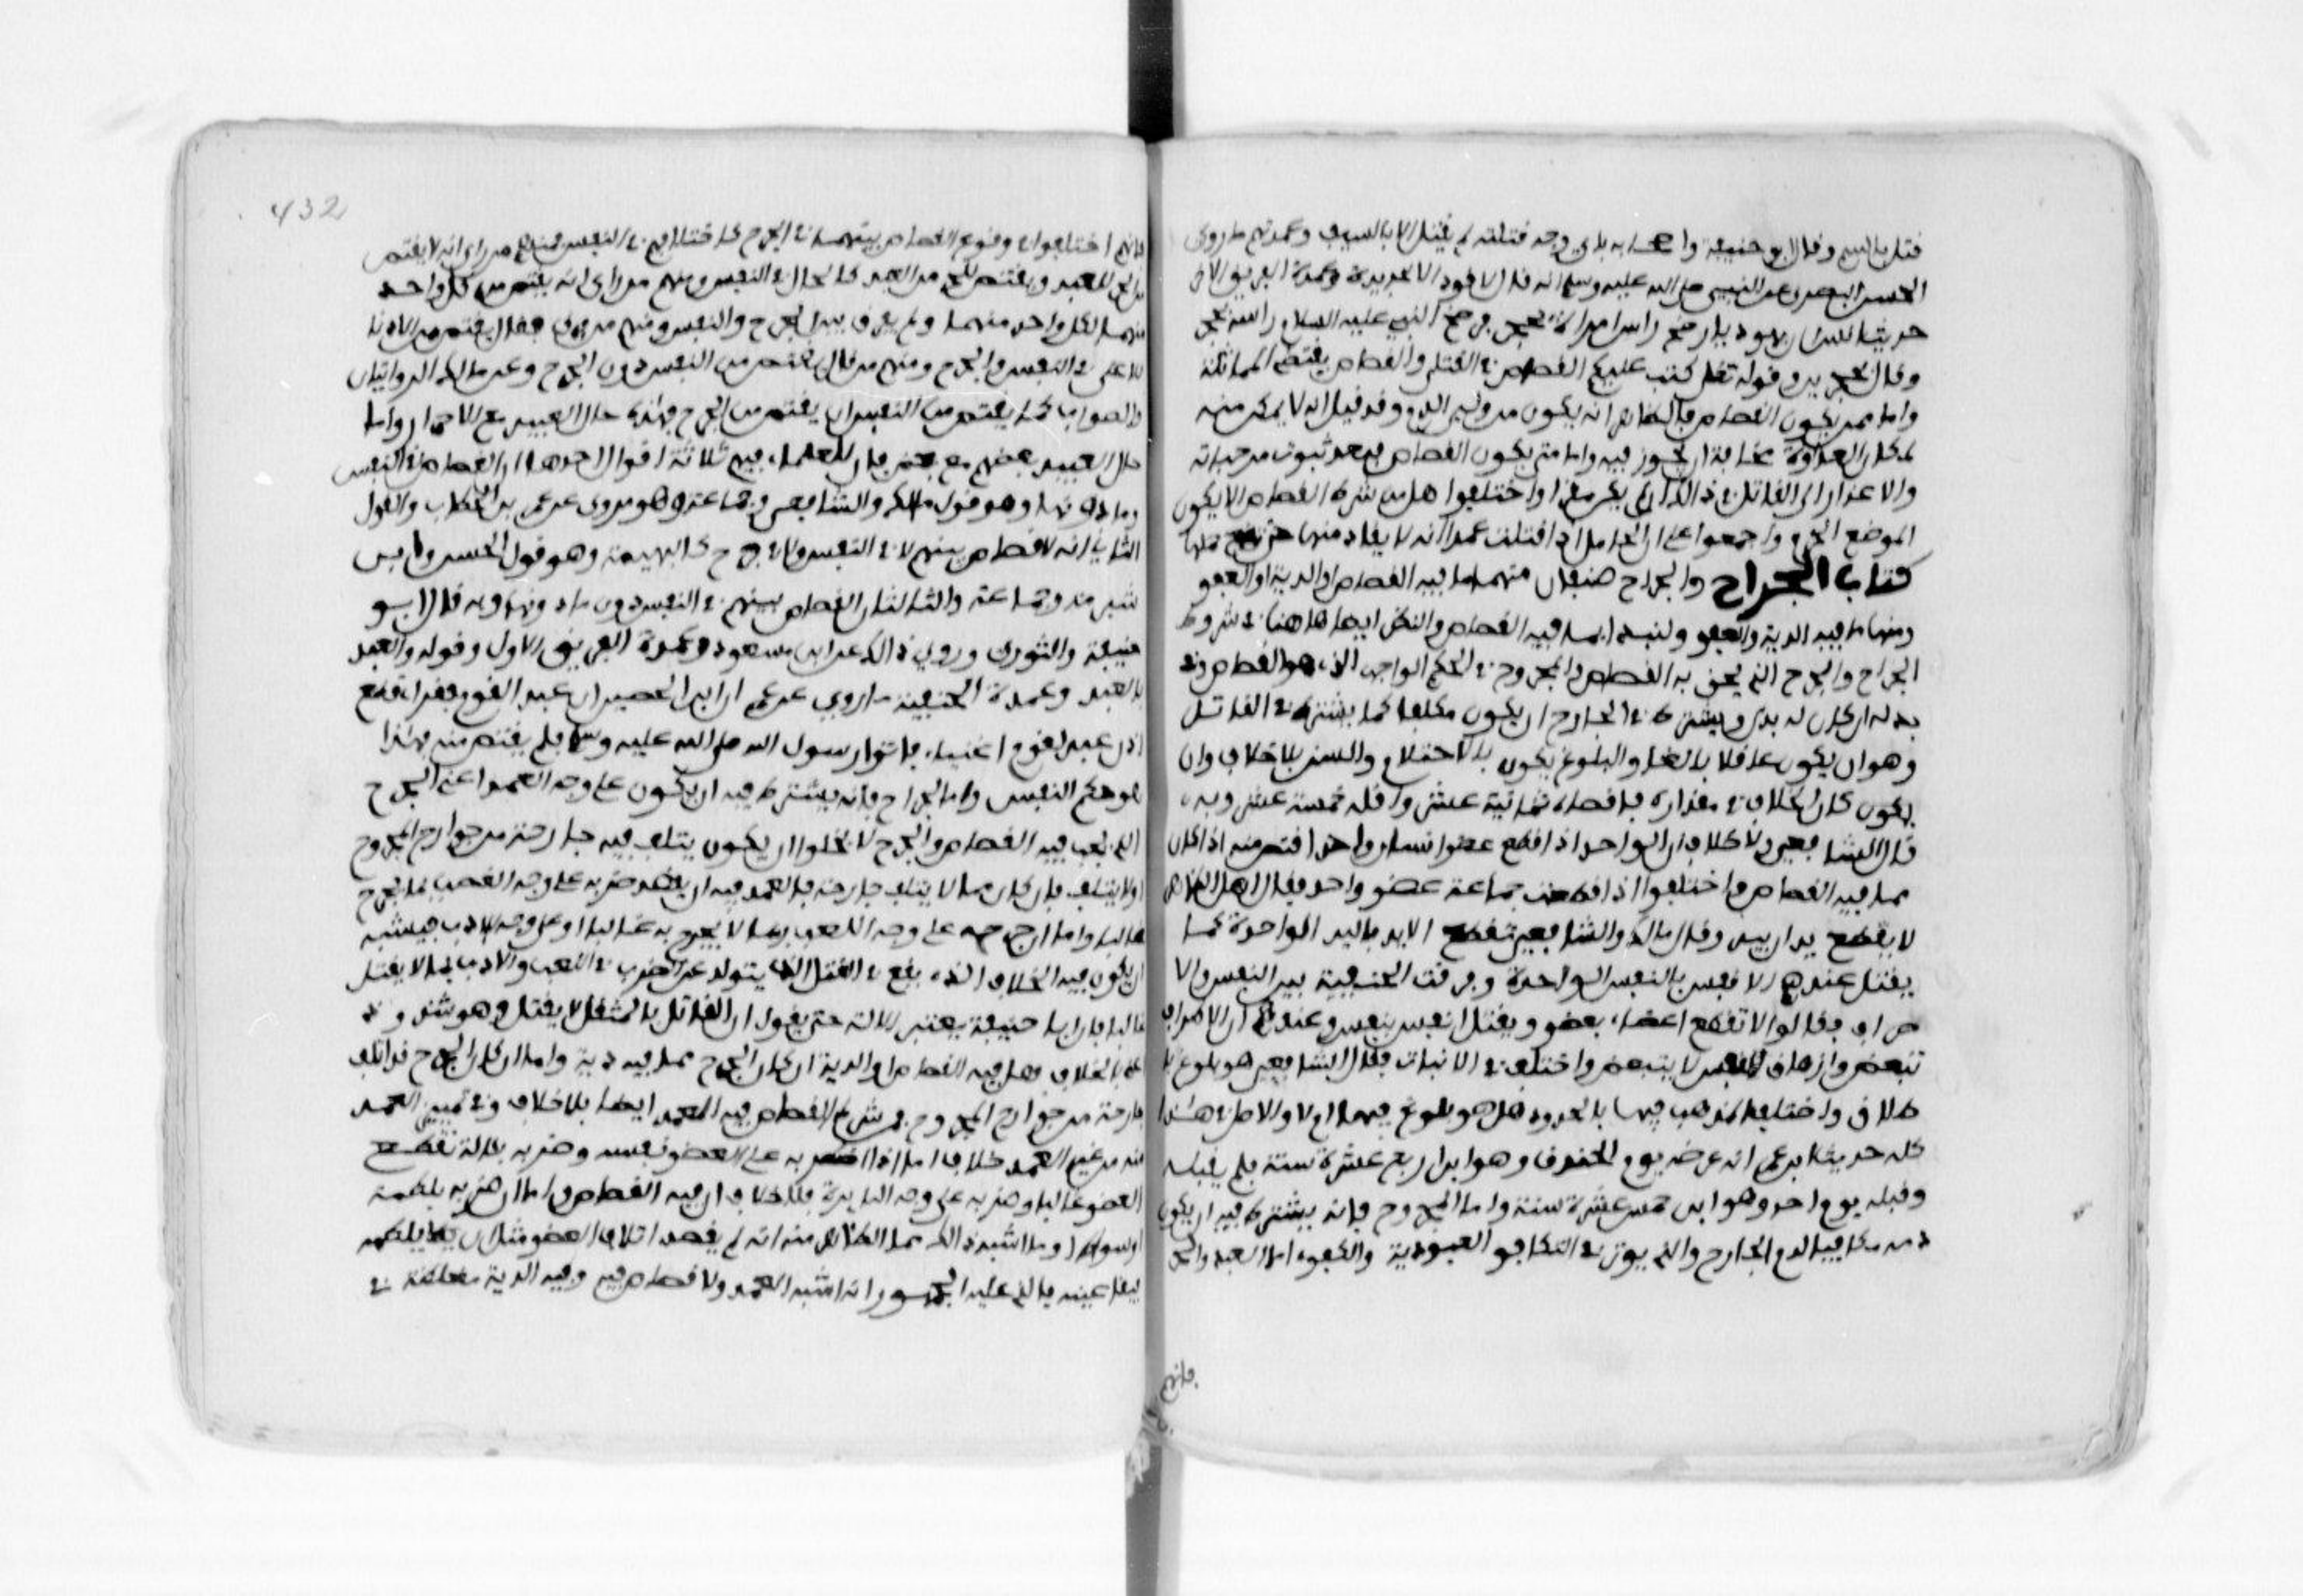 قتل بالسم وقال ابو حنيفة واصحابه باي وجه قتلته لم يقتل الا بالسيف وعمدتهم ما روى
الحسن البصري عن النبي صلى الله عليه وسلم انه قال لا قود الا بحديدة وعمدة الفريق الاول
حديث انس ان يهوديا رضخ راس امراة بحجر فرضخ النبي عليه السلام راسه بحجر
وقال بحجرين وقوله تعلى كتب عليكم القصاص في القتلى والقصاص يقتضي المماثلة
واما ممن يكون القصاص فالظاهر انه يكون من ولي الدم وقد قيل انه لا يمكن منه
لمكان العداوة مخافة ان يجوز فيه واما متى يكون القصاص فبعد ثبوت موجباته
والاعذار الى القاتل في ذلك ان لم يكن مقرا واختلفوا هل من شرط القصاص الا يكون
الموضع الحرم واجمعوا على ان الحامل اذا قتلت عمدا انه لا يقاد منها حتى تضع حملها
كتاب الجراح والجراح صنفان منهما ما فيه القصاص او الدية او العفو
ومنها ما فيه الدية والعفو ولنبدا بما فيه القصاص والنظر ايضا هاهنا في شروط
الجراح والجرح الذي يحق به القصاص والمجروح وفي الحكم الواجب الذي هو القصاص وفي
بدله ان كان له بدل ويشترط في الجارح ان يكون مكلفا كما يشترط في القاتل
وهو ان يكون عاقلا بالغا والبلوغ يكون بالاحتلام والسن بلا خلاف وان
يكون كان الخلاف في مقداره فاقصاه ثمانية عشر واقله خمسة عشر وبه
قال الشافعي ولا خلاف ان الواحد اذا قطع عضو انسان واحد اقتص منه اذا كان
مما فيه القصاص واختلفوا اذا قطعت جماعة عضو واحد فقال اهل الظاهر
لا يقطع يدان بيد وقال مالك والشافعي تقطع الايد باليد الواحدة كما
يقتل عندهم الانفس بالنفس الواحدة وفرقت الحنفية بين النفس والا
طراف فقالوا لا تقطع اعضاء بعضو ويقتل انفس بنفس وعندهم ان الاطراف
تتبعض وازهاق النفس لا يتبعض واختلف في الانبات فقال الشافعي هو بلوغ با
طلاق واختلف المذهب فيها بالحدود هل هو بلوغ فيها ام لا والاصل في هذا
كله حديث ابن عمر انه عرضه يوم الخندق وهو ابن اربع عشرة سنة فلم يقبله
وقبله يوم احد وهو ابن خمس عشرة سنة واما المجروح فانه يشترط فيه ان يكون
دمه مكافيا لدم الجارح والذي يوثر في التكافو العبودية والكفر اما العبد والحر
فانهم
432
فانهم اختلفوا في وقوع القصاص بينهما في الجرح كاختلافهم في النفس فمنهم من راى انه لا يقتص
من الحر للعبد ويقتص للحر من العبد كالحال في النفس ومنهم من راى انه يقتص من كل واحد
منهما لكل واحد منهما ولم يفرق بين الجرح والنفس ومنهم من فرق فقال يقتص من الادنا
للاعلى في النفس والجرح ومنهم من قال يقتص من النفس دون الجرح وعن مالك الروايتان
والصواب كما يقتص من النفس ان يقتص من الجرح فهذه حال العبيد مع الاحرار واما
حال العبيد بعضهم مع بعض فان للعلماء فيهم ثلاثة اقوال احدها ان القصاص في النفس
وما دونها وهو قول مالك والشافعي وجماعة وهو مروي عن عمر بن الخطاب والقول
الثاني انه لا قصاص بينهم لا في النفس ولا في جرح كالبهيمة وهو قول الحسن وابن
شبرمة وجماعة والثالث ان القصاص بينهم في النفس دون ما دونها وبه قال ابو
حنيفة والثوري وروي ذلك عن ابن مسعود وعمدة الفريق الاول وقوله والعبد
بالعبد وعمدة الحنفية ما روي عن عمران ابن الحصين ان عبد القوم فقراء قطع
اذن عبد لقوم اغنياء فاتوا رسول الله صلى الله عليه وسلم فلم يقتص منه فهذا
هو حكم النفس واما الجراح فانه يشترط فيه ان يكون على وجه العمد اعني الجرح
الذي يجب فيه القصاص والجرح لا يخلوا ان يكون يتلف فيه جارحة من جوارح المجروح
او لا يتلف فان كان مما لا يتلف جارحة فالعمد فيه ان يقصد ضربه على وجه الغضب بما يجرح
غالبا واما ان جرحه على وجه اللعب بما لا يجرح به غالبا او على وجه الادب فيشبه
ان يكون فيه الخلاف الذي يقع في القتل الذي يتولد عن الضرب في اللعب والادب بما لا يقتل
غالبا فان ابا حنيفة يعتبر الالة حتى يقول ان القاتل بالمثقل لا يقتل وهو شذوذ
منه بالخلاف هل فيه القصاص او الدية ان كان الجرح مما فيه دية واما ان كان الجرح قد اتلف
جارحة من جوارح المجروح فمن شرط القصاص فيه العمد ايضا بلا خلاف وفي تمييز العمد
منه من غير العمد خلاف اما اذا ضربه على العضو نفسه وضربه بالة تقطع
العضو غالبا وضربه على وجه النايرة فلا خلاف ان فيه القصاص واما ان ضربه بلطمة
او سوط او ما اشبه ذلك مما الظاهر منه انه لم يقصد اتلاف العضو مثل ان يلطمه
فيفقا عينه فالذي عليه الجمهور انه اشبه العمد ولا قصاص فيه وفيه الدية مغلظة في